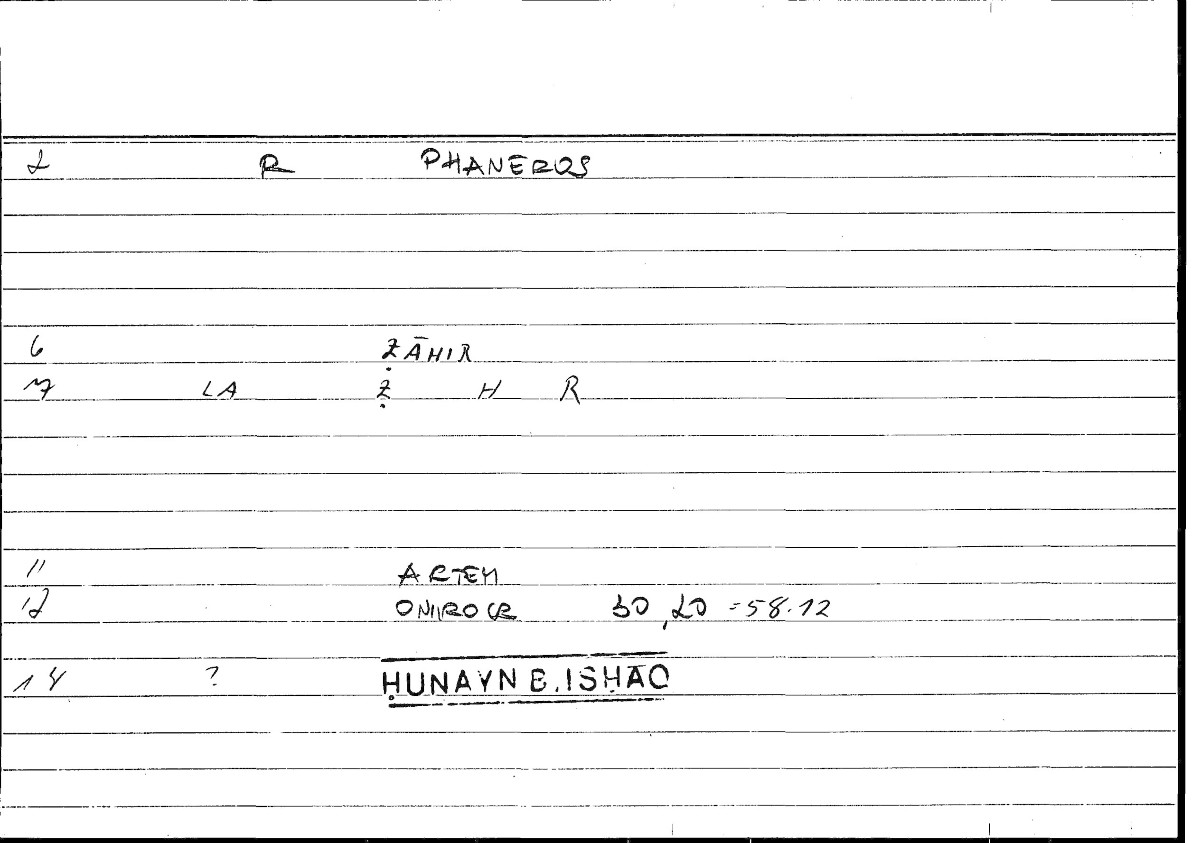 2 R PHANEROS
6 ẒĀHIR
7 LA Ẓ H R
11 ARTEM
12 ONIROCR 30,20 =58.12
14 ? ḤUNAYN B. ISḤAQ